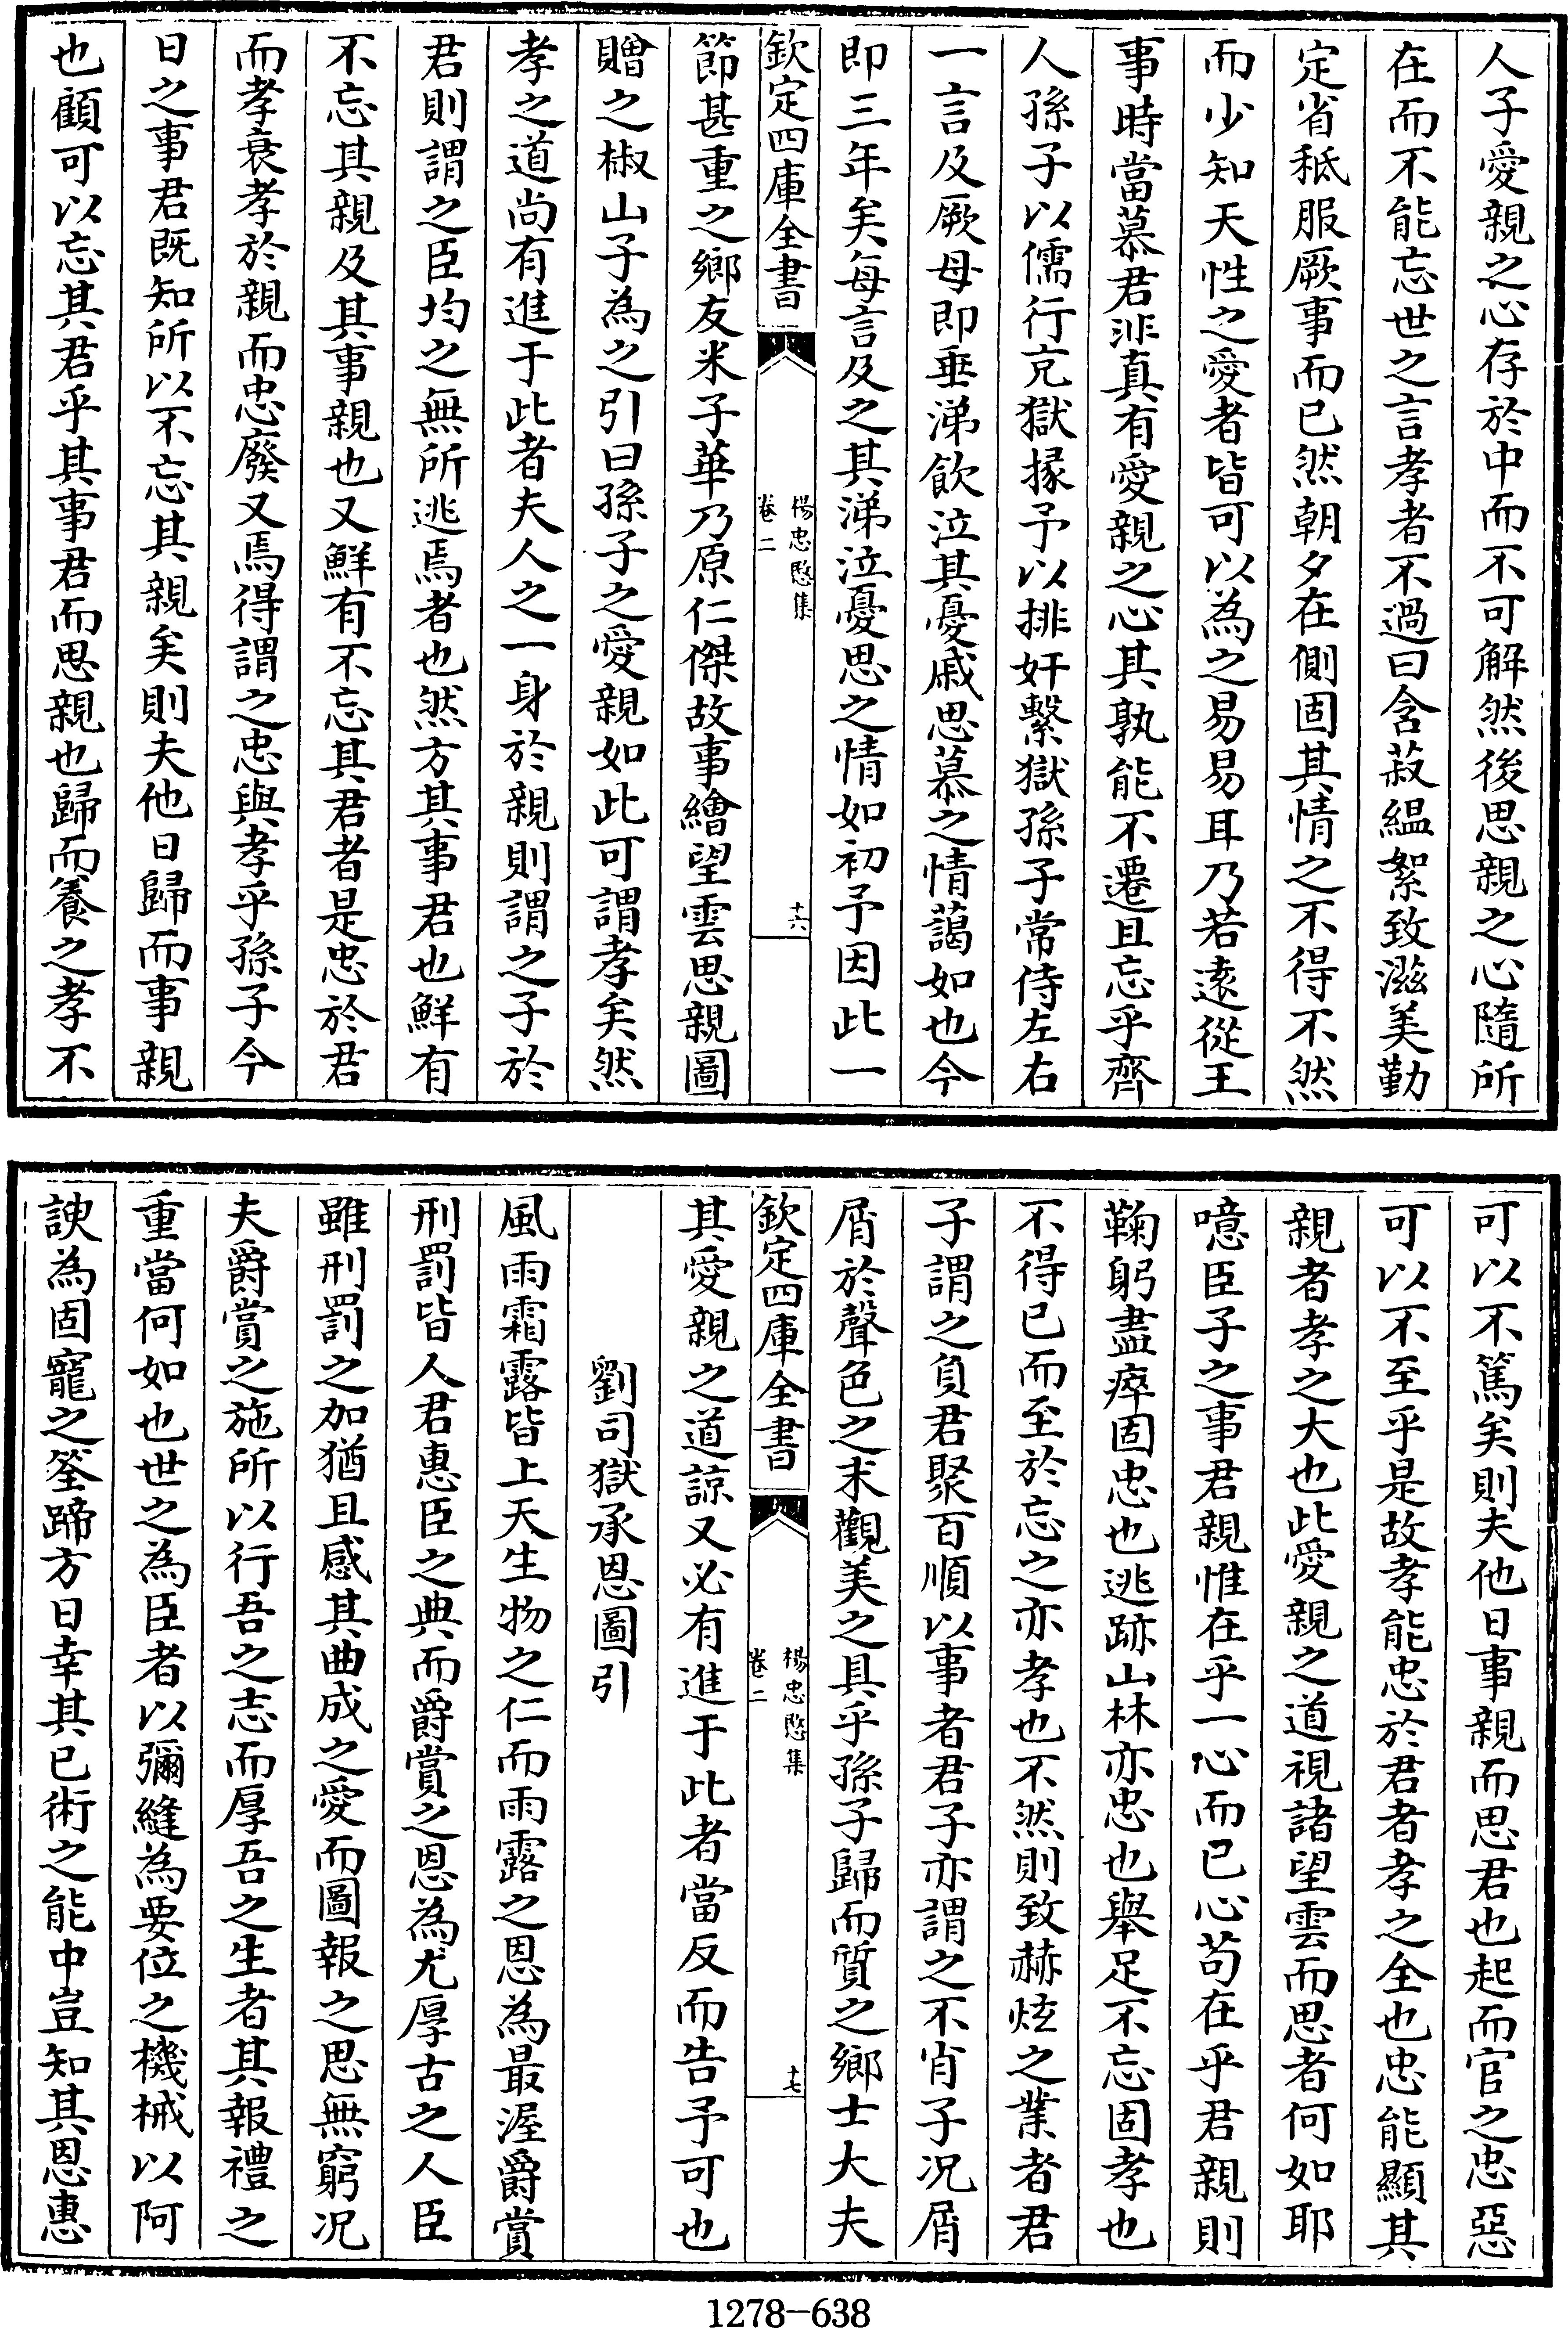 人子愛親之心存於中而不可解然後思親之心隨所
在而不能忘世之言孝者不過曰含菽緼絮致滋美勤
定省秪服厥事而已然朝夕在側固其情之不得不然
而少知天性之愛者皆可以為之易易耳乃若逺從王
事時當慕君非真有愛親之心其孰能不遷且忘乎齊
人孫子以儒行克獄掾予以排奸繫獄孫子常侍左右
一言及厥母即垂涕飲泣其憂戚思慕之情藹如也今
即三年矣每言及之其涕泣憂思之情如初予因此一
欽定四庫全書
楊忠愍集
卷二
十六
節甚重之鄉友米子華乃原仁傑故事繪望雲思親圖
贈之椒山子為之引曰孫子之愛親如此可謂孝矣然
孝之道尚有進于此者夫人之一身於親則謂之子於
君則謂之臣均之無所逃焉者也然方其事君也鮮有
不忘其親及其事親也又鮮有不忘其君者是忠於君
而孝衰孝於親而忠廢又焉得謂之忠與孝乎孫子今
日之事君既知所以不忘其親矣則夫他日歸而事親
也顧可以忘其君乎其事君而思親也歸而養之孝不
可以不篤矣則夫他日事親而思君也起而官之忠惡
可以不至乎是故孝能忠於君者孝之全也忠能顯其
親者孝之大也此愛親之道視諸望雲而思者何如耶
噫臣子之事君親惟在乎一心而已心苟在乎君親則
鞠躬盡瘁固忠也逃跡山林亦忠也舉足不忘固孝也
不得已而至於忘之亦孝也不然則致赫炫之業者君
子謂之負君聚百順以事者君子亦謂之不肖子况屑
屑於聲色之末觀美之具乎孫子歸而質之鄉士大夫
欽定四庫全書
楊忠愍集
卷二
十七
其愛親之道諒又必有進于此者當反而告予可也
劉司獄承恩圖引
風雨霜露皆上天生物之仁而雨露之恩為最渥爵賞
刑罰皆人君惠臣之典而爵賞之恩為尤厚古之人臣
雖刑罰之加猶且感其曲成之愛而圖報之思無窮况
夫爵賞之施所以行吾之志而厚吾之生者其報禮之
重當何如也世之為臣者以彌縫為要位之機械以阿
諛為固寵之筌蹄方日幸其已術之能中豈知其恩惠
1278-638